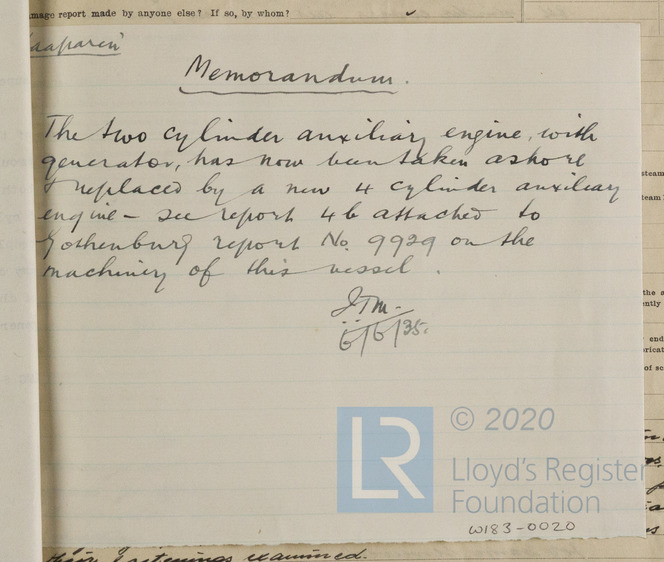 mage report made by anyone else? If so, by whom?
Kaaparen"
Memorandum.
The two cylinder auxiliary engine, with
generator, has now been taken ashore
& replaced by a new 4 cylinder auxiliary
engine – see report 4b attached to
Gothenburg report No. 9929 on the
machinery of this vessel.
6/6/35.
steam
team
the a
ently
end
of sc
LR
© 2020
Lloyd's Register
Foundation
W183-0020
their fastenings examined.